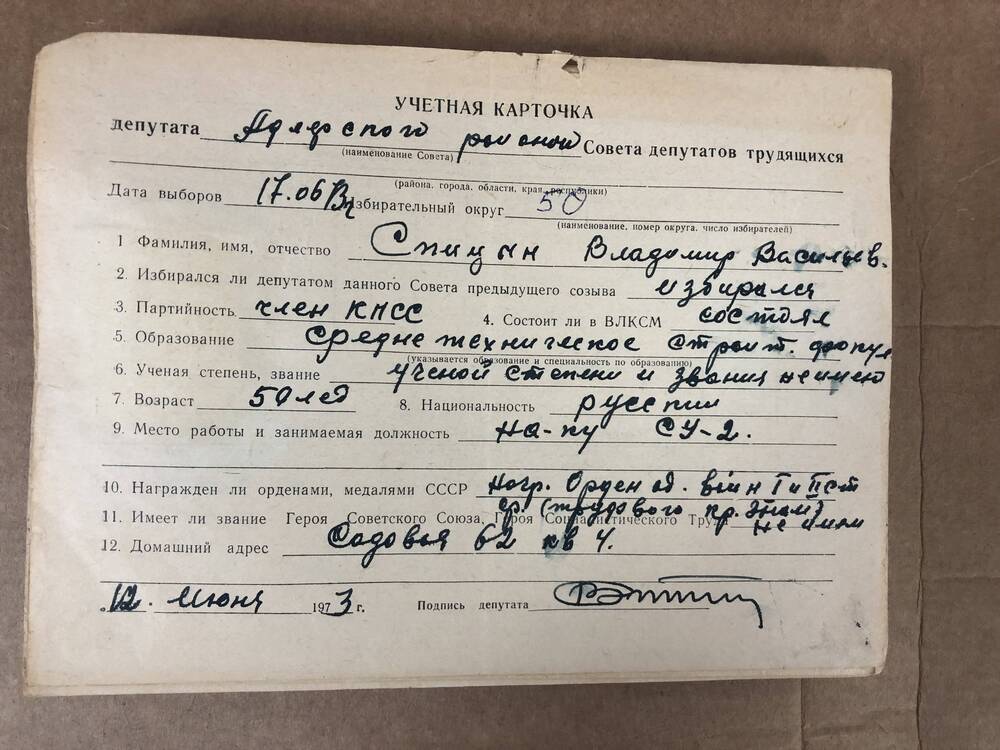 УЧЕТНАЯ КАРТОЧКА
депутата районой Совета депутатов трудящихся
(наименование Совета)
(района, города, области, края, республики)
Дата выборов 17.06 Избирательный округ 50
(наименование, номер округа, число избирателей)
1 Фамилия, имя, отчество Спицын Владимир Васильев.
2. Избирался ли депутатом данного Совета предыдущего созыва избирался
3. Партийность член КПСС 4. Состоит ли в ВЛКСМ состоял
5. Образование средне техническое строит.
(указывается образование и специальность по образованию)
6. Ученая степень, звание ученой степени и звания не имею
7. Возраст 50 лет 8. Национальность русский
9. Место работы и занимаемая должность СУ-2.
10. Награжден ли орденами, медалями СССР Нагр. Орден от. войн I и II ст
ор. (трудового кр. Знам)
11. Имеет ли звание Героя Советского Союза, Героя Социалистического Труда не имею
12. Домашний адрес Садовая 62 кв 4.
12. Июня 1973 г. Подпись депутата